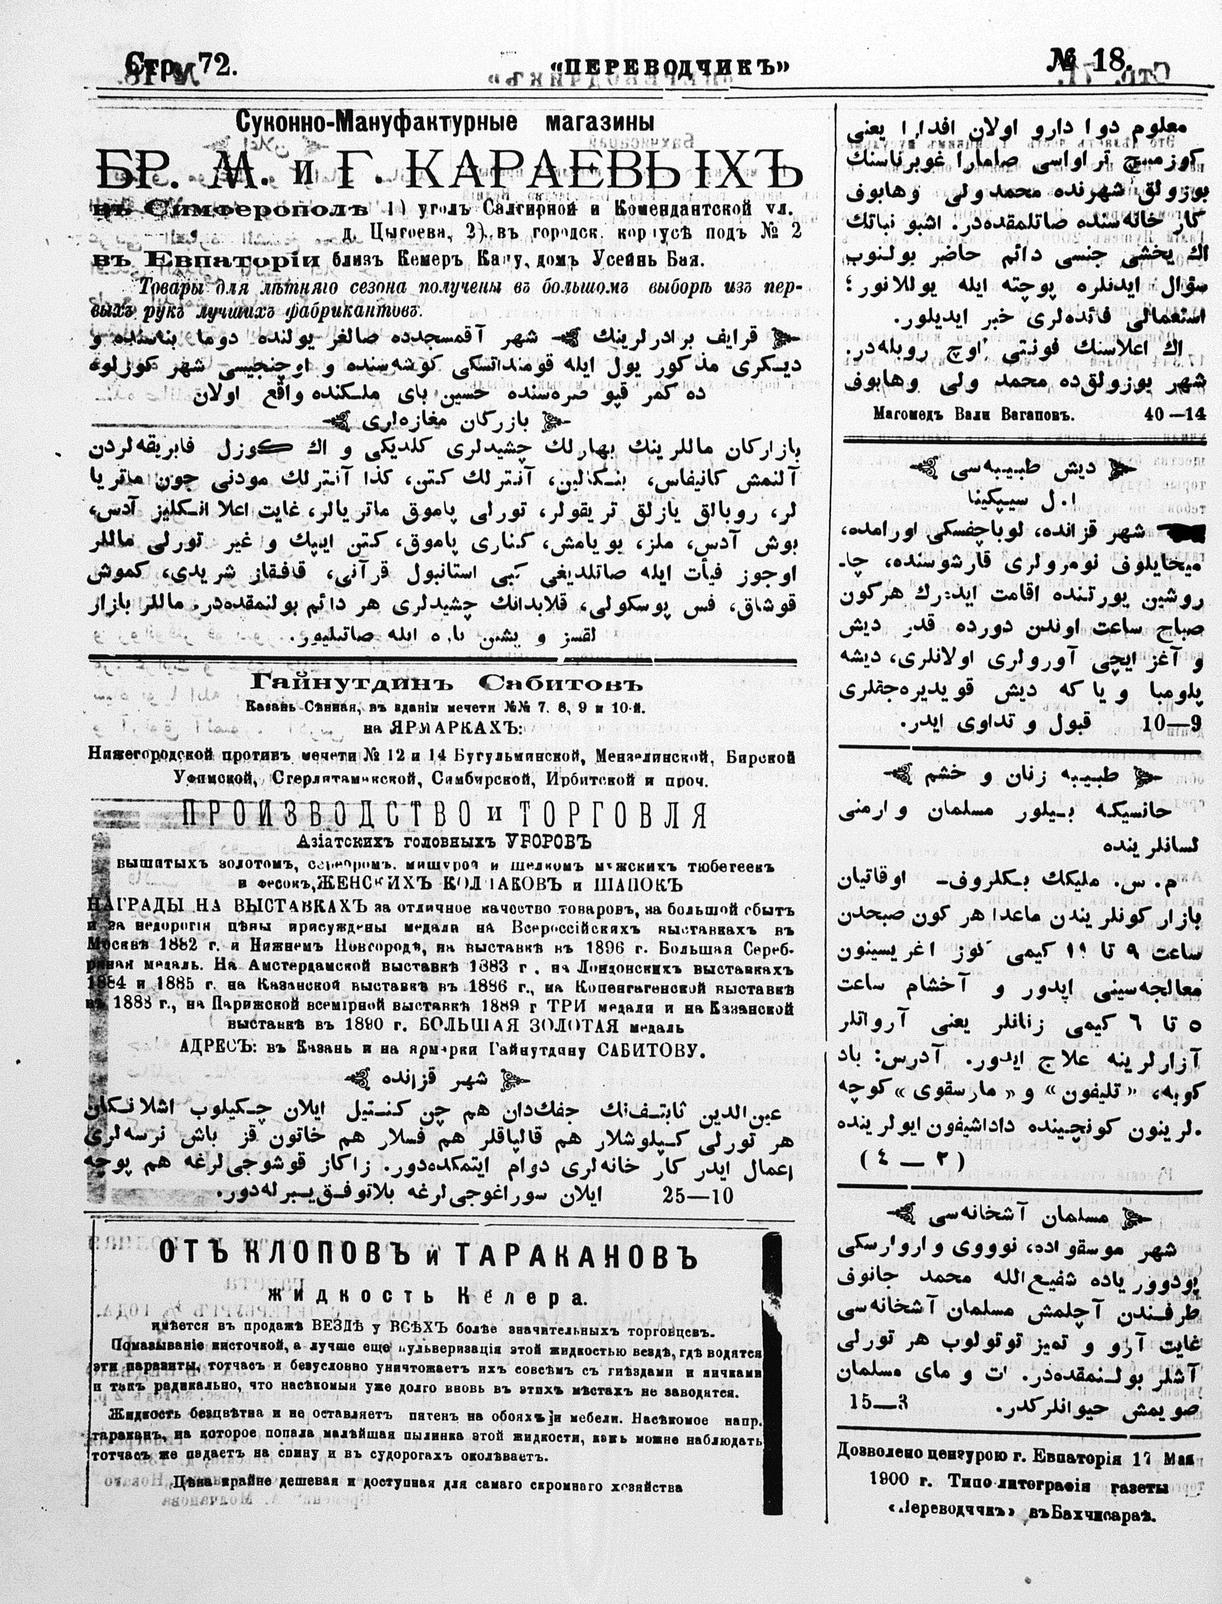 Стр. 72.
«ПЕРЕВОДЧИКЪ»
№ 18.
Суконно-Мануфактурные магазины
БР. М. и Г. КАРАЕВЫХЪ
въ Симферополѣ 1) уголъ Салгирной и Комендантской ул.
д. Цыгоева, 2) въ городск. корпусѣ подъ № 2
въ Евпаторіи близъ Кемеръ Капу, домъ Усейнъ Бая.
Товары для лѣтняго сезона получены въ большомъ выборѣ изъ пер-
выхъ рукъ лучшихъ фабрикантовъ.
قرایف برادرلرینك شهر آقمسجدده صالغر یولنده دوما بناسنده و
دیكری مذكور یول ایله قومنداتسكی كوشه‌سنده و اوچنجیسی شهر كوزلوه
ده كمر قپو صره‌سنده حسین بای ملكنده واقع اولان
بازركان مغازه‌لری
بازاركان ماللرینك بهارلك چشیدلری كلدیكی و اك كوزل فابریقه‌لردن
آلنمش كانیفاس، بنكالین، آنترلك كتن، كذا آنترلك مودنی جون ماتریا
لر، روبالق یازلق تریقولر، تورلی پاموق ماتریالر، غایت اعلا انكلیز آدس،
بوش آدس، ملز، بویامش، كناری پاموق، كتن ایپك و غیر تورلی ماللر
اوجوز فیأت ایله صاتلدیغی كبی استانبول قرآنی، قافقاز شریدی، كموش
قوشاق، فس پوسكولی، قلابدانك چشیدلری هر دائم بولنمقده‌در. ماللر بازار
لقسز و پشین پاره ایله صاتیلیور.
Гайнутдинъ Сабитовъ
Казань-Сѣнная, въ зданіи мечети №№ 7, 8, 9 и 10-й.
на ЯРМАРКАХЪ:
Нижегородской противъ мечети № 12 и 14 Бугульминской, Мензелинской, Бирской
Уфимской, Стерлитамакской, Симбирской, Ирбитской и проч.
ПРОИЗВОДСТВО и ТОРГОВЛЯ
Азіатскихъ головныхъ УБОРОВЪ
вышитыхъ золотомъ, серебромъ, мишурой и шелкомъ мужскихъ тюбетеекъ
и фесокъ, ЖЕНСКИХЪ КОЛПАКОВЪ и ШАПОКЪ
НАГРАДЫ НА ВЫСТАВКАХЪ за отличное качество товаровъ, за большой сбытъ
и за недорогія цѣны присуждены медали на Всероссійскихъ выставкахъ въ
Москвѣ 1882 г. и Нижнемъ Новгородѣ, на выставкѣ въ 1896 г. Большая Сереб-
ряная медаль. На Амстердамской выставкѣ 1883 г., на Лондонскихъ выставкахъ
1884 и 1885 г. на Казанской выставкѣ въ 1886 г., на Копенгагенской выставкѣ
въ 1888 г., на Парижской всемірной выставкѣ 1889 г ТРИ медали и на Казанской
выставкѣ въ 1890 г. БОЛЬШАЯ ЗОЛОТАЯ медаль
АДРЕСЪ: въ Казань и на ярмарки Гайнутдину САБИТОВУ.
شهر قزانده
عین‌الدین ثابتفنك جفك‌دان هم چن كنتیل ایلان چكیلوب اشلانكان
هر تورلی كپلوشلار هم قالپاقلر هم فسلار هم خاتون قز باش نرسه‌لری
اعمال ایدر كار خانه‌لری دوام ایتمكده‌دور. زاكاز قوشوجی‌لرغه هم پوچه
ایلان سوراغوجی‌لرغه بلاتوفق یبرله‌دور. 25—10
ОТЪ КЛОПОВЪ и ТАРАКАНОВЪ
жидкость Келера.
имѣется въ продажѣ ВЕЗДѢ у ВСѢХЪ болѣе значительныхъ торговцевъ.
Помазываніе кисточкой, а лучше еще пульверизація этой жидкостью вездѣ, гдѣ водятся
эти паразиты, тотчасъ и безусловно уничтожаетъ ихъ совсѣмъ съ гнѣздами и яичками
и такъ радикально, что насѣкомыя уже долго вновь въ этихъ мѣстахъ не заводятся.
Жидкость безцвѣтна и не оставляетъ пятенъ на обояхъ и мебели. Насѣкомое напр.
тараканъ, на которое попала малѣйшая пылинка этой жидкости, какъ можно наблюдать
тотчасъ же падаетъ на спину и въ судорогахъ околѣваетъ.
Цѣна крайне дешевая и доступная для самаго скромнаго хозяйства
معلوم دوا دارو اولان افدرا یعنی
كوزمیچ تراواسی صامارا غوبرناسنك
بوزولق شهرنده محمد ولی وهابوف
كار خانه‌سنده صاتلمقده‌در. اشبو نباتك
اك یخشی جنسی دائم حاضر بولنوب
سؤال ایدنلره پوچته ایله یوللانور؛
استعمالی فائده‌لری خبر ایدیلور.
اك اعلاسنك فونتی اوچ روبله‌در.
شهر بوزولق‌ده محمد ولی وهابوف
Магомедъ Вали Вагаповъ. 40—14
دیش طبیبه‌سی
ا. ل سیپكینا
شهر قزانده، لوباچفسكی اورامده،
میخایلوف نومرولری قارشوسنده، چا-
روشین یورتنده اقامت ایدرك هركون
صباح ساعت اوندن دورده قدر دیش
و آغز ایچی آورولری اولانلری، دیشه
پلومبا و یا كه دیش قویدیره‌جقلری
قبول و تداوی ایدر. 10—9
طبیبه زنان و خشم
حانسیكه بیلور مسلمان و ارمنی
لسانلرینده
م. س. ملیكك بكلروف- اوقاتیان
بازار كونلریندن ماعدا هر كون صبحدن
ساعت ٩ تا ١١ كیمی كوز اغریسینون
معالجه‌سینی ایدور و آخشام ساعت
٥ تا ٦ كیمی زنانلر یعنی آرواتلر
آزارلرینه علاج ایدور. آدرس: باد
كوبه، «تلیفون» و «مارسقوی» كوچه
لرینون كونجینده داداشیفون ایولرینده.
(٤ — ٣)
مسلمان آشخانه‌سی
شهر موسقواده، نوووی واروارسكی
پودووریاده شفیع‌الله محمد جانوف
طرفندن آچلمش مسلمان آشخانه‌سی
غایت آرو و تمیز توتولوب هر تورلی
آشلر بولنمقده‌در. ات و مای مسلمان
صویمش حیوانلركدر. 15—3
Дозволено цензурою г. Евпаторія 17 Мая
1900 г. Типо-литографія газеты
«Переводчикъ» въ Бахчисараѣ.